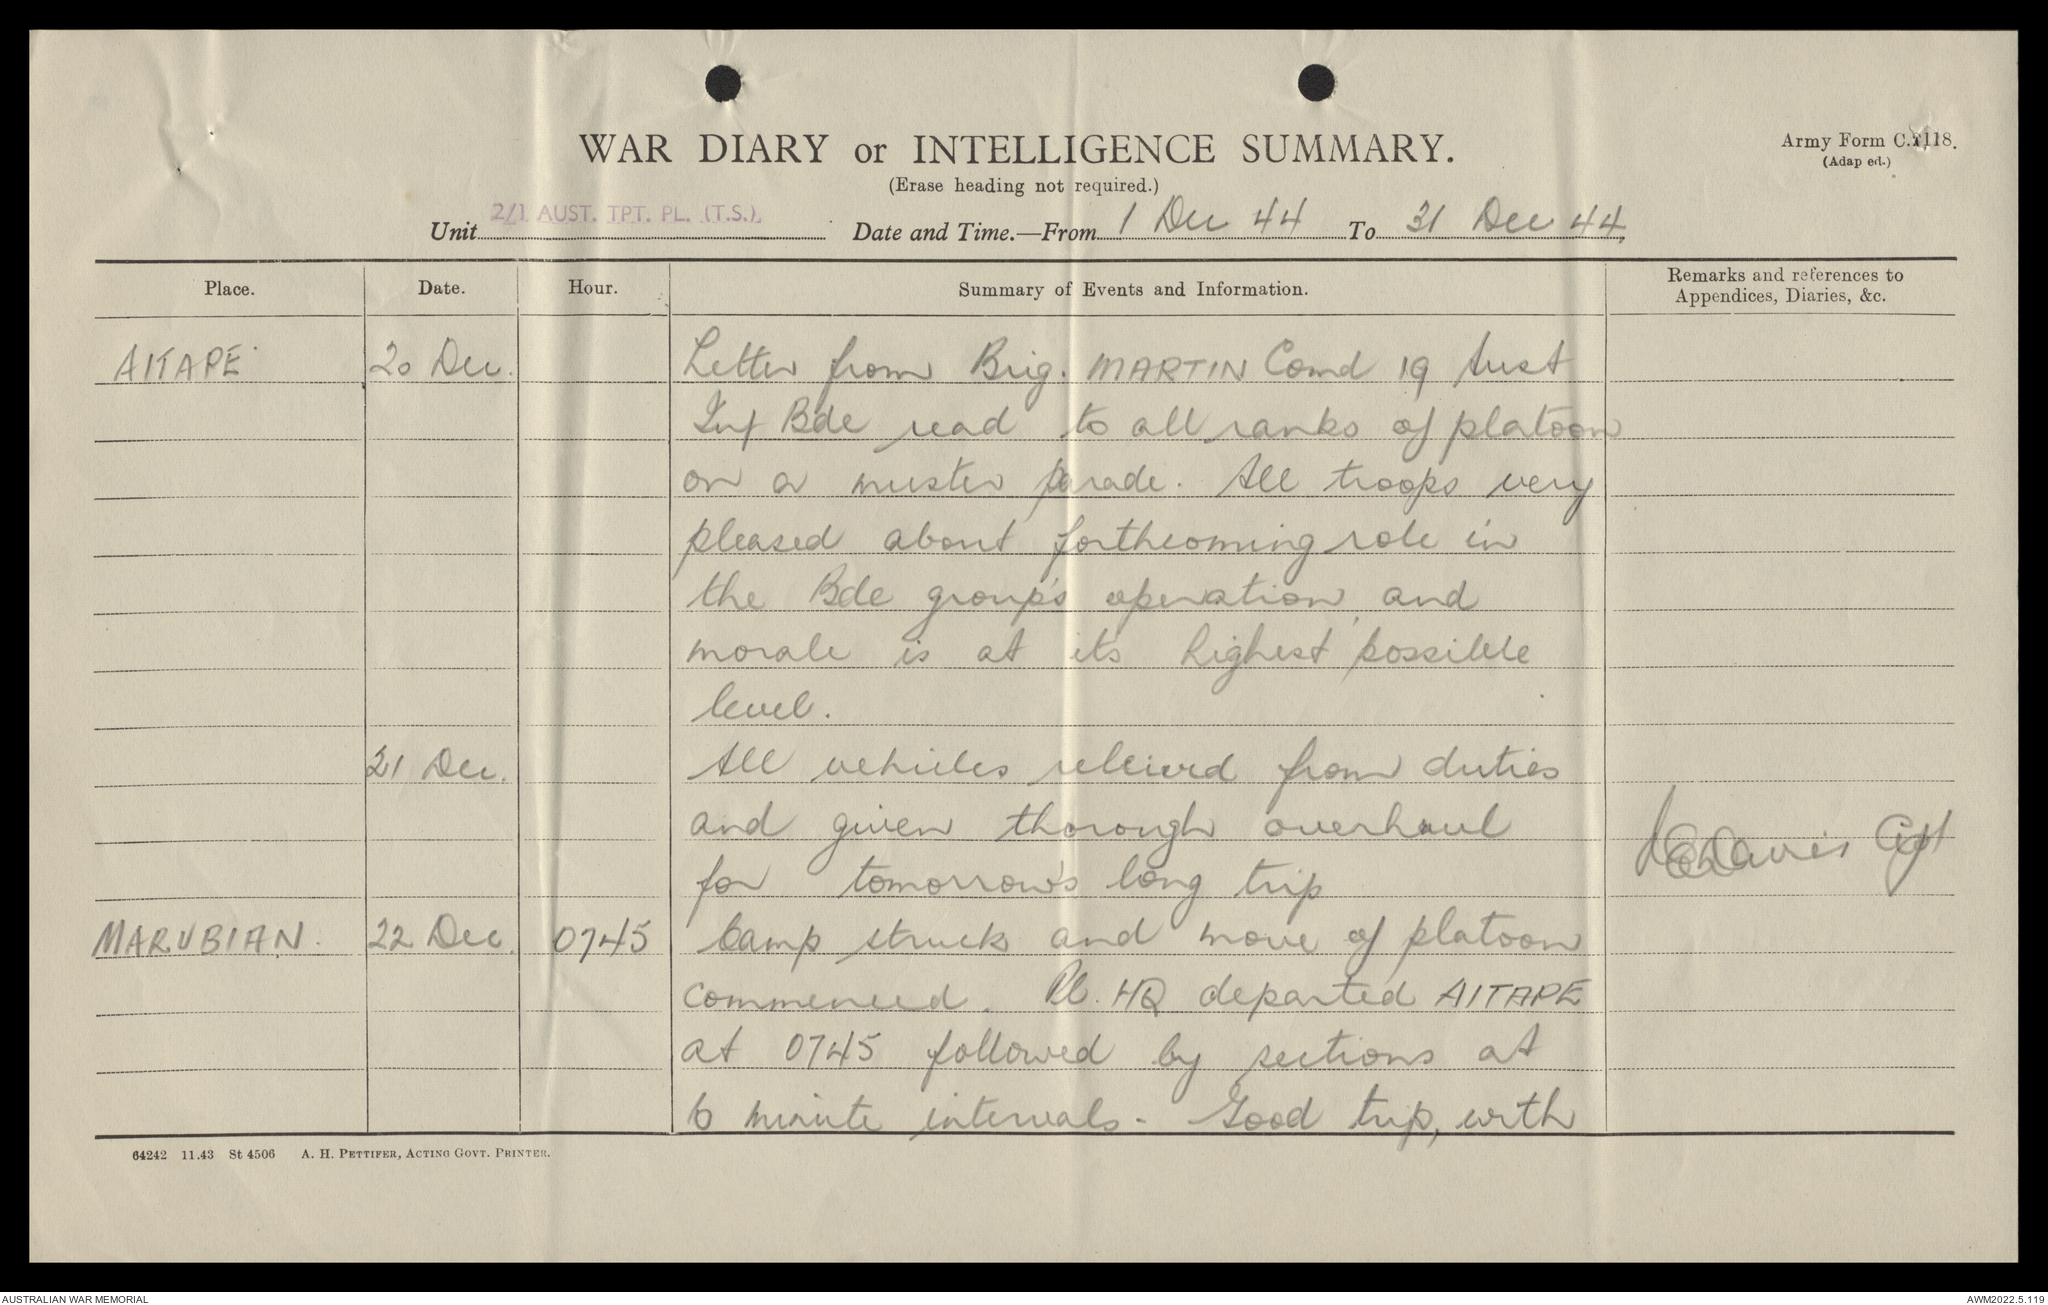 WAR DIARY or INTELLIGENCE SUMMARY.
Army Form C.2118.
(Adap ed.)
(Erase heading not required.)
Unit 2/1 AUST. TPT. PL. (T.S.). Date and Time.—From 1 Dec 44 To 31 Dec 44.
Place. Date. Hour. Summary of Events and Information. Remarks and references to
Appendices, Diaries, &c.
AITAPE 20 Dec. Letter from Brig. MARTIN Comd 19 Aust
Inf Bde read to all ranks of platoon
on a muster parade. All troops very
pleased about forthcoming role in
the Bde group's operation, and
morale is at its highest possible
level.
21 Dec. All vehicles relieved from duties
and given thorough overhaul
for tomorrow's long trip
Davis Capt
MARUBIAN. 22 Dec. 0745 Camp struck and move of platoon
commenced. Pl. HQ departed AITAPE
at 0745 followed by sections at
6 minute intervals. Good trip, with
64242 11.43 St 4506 A. H. PETTIFER, ACTING GOVT. PRINTER.
AUSTRALIAN WAR MEMORIAL AWM2022.5.119